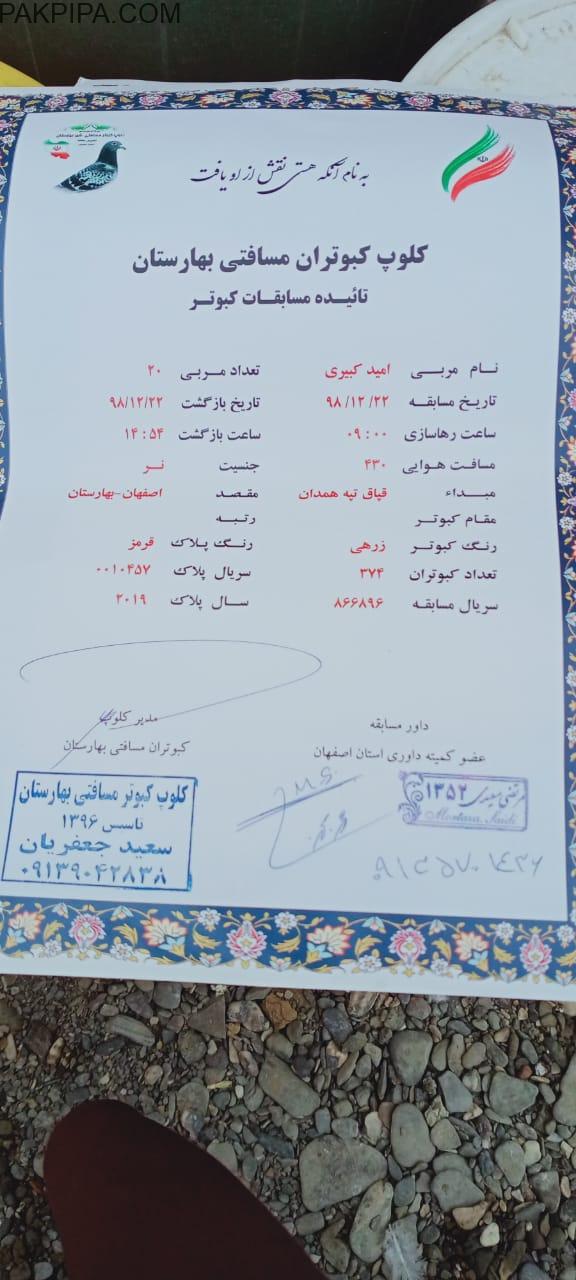 PAKPIPA.COM
به نام آنکه هستی نقش از او یافت
کلوپ کبوتران مسافتی بهارستان
تائیـده مسابقـات کبوتـر
نـام مربـی امید کبیری تعداد مـربی ۲۰
تاریخ مسابقـه ۹۸/۱۲/۲۲ تاریخ بازگشت ۹۸/۱۲/۲۲
ساعت رهاسازی ۰۹:۰۰ ساعت بازگشت ۱۴:۵۴
مسافت هوایی ۴۳۰ جنسیت نـر
مبـداء قپاق تپه همدان مقصـد اصفهان-بهارستان
مقـام کبوتـر رتبـه
رنـگ کبوتـر زرهی رنـگ پـلاک قرمز
تعداد کبوتران ۳۷۴ سریال پلاک ۰۰۱۰۴۵۷
سریال مسابقـه ۸۶۶۸۹۶ سـال پلاک ۲۰۱۹
داور مسابقه
عضو کمیته داوری استان اصفهان
مدیر کلوپ
کبوتران مسافتی بهارستان
مرتضی سعیدی ۱۳۵۲
کلوپ کبوتر مسافتی بهارستان
تاسیس ۱۳۹۶
سعید جعفریان
۰۹۱۳۹۰۴۲۸۳۸